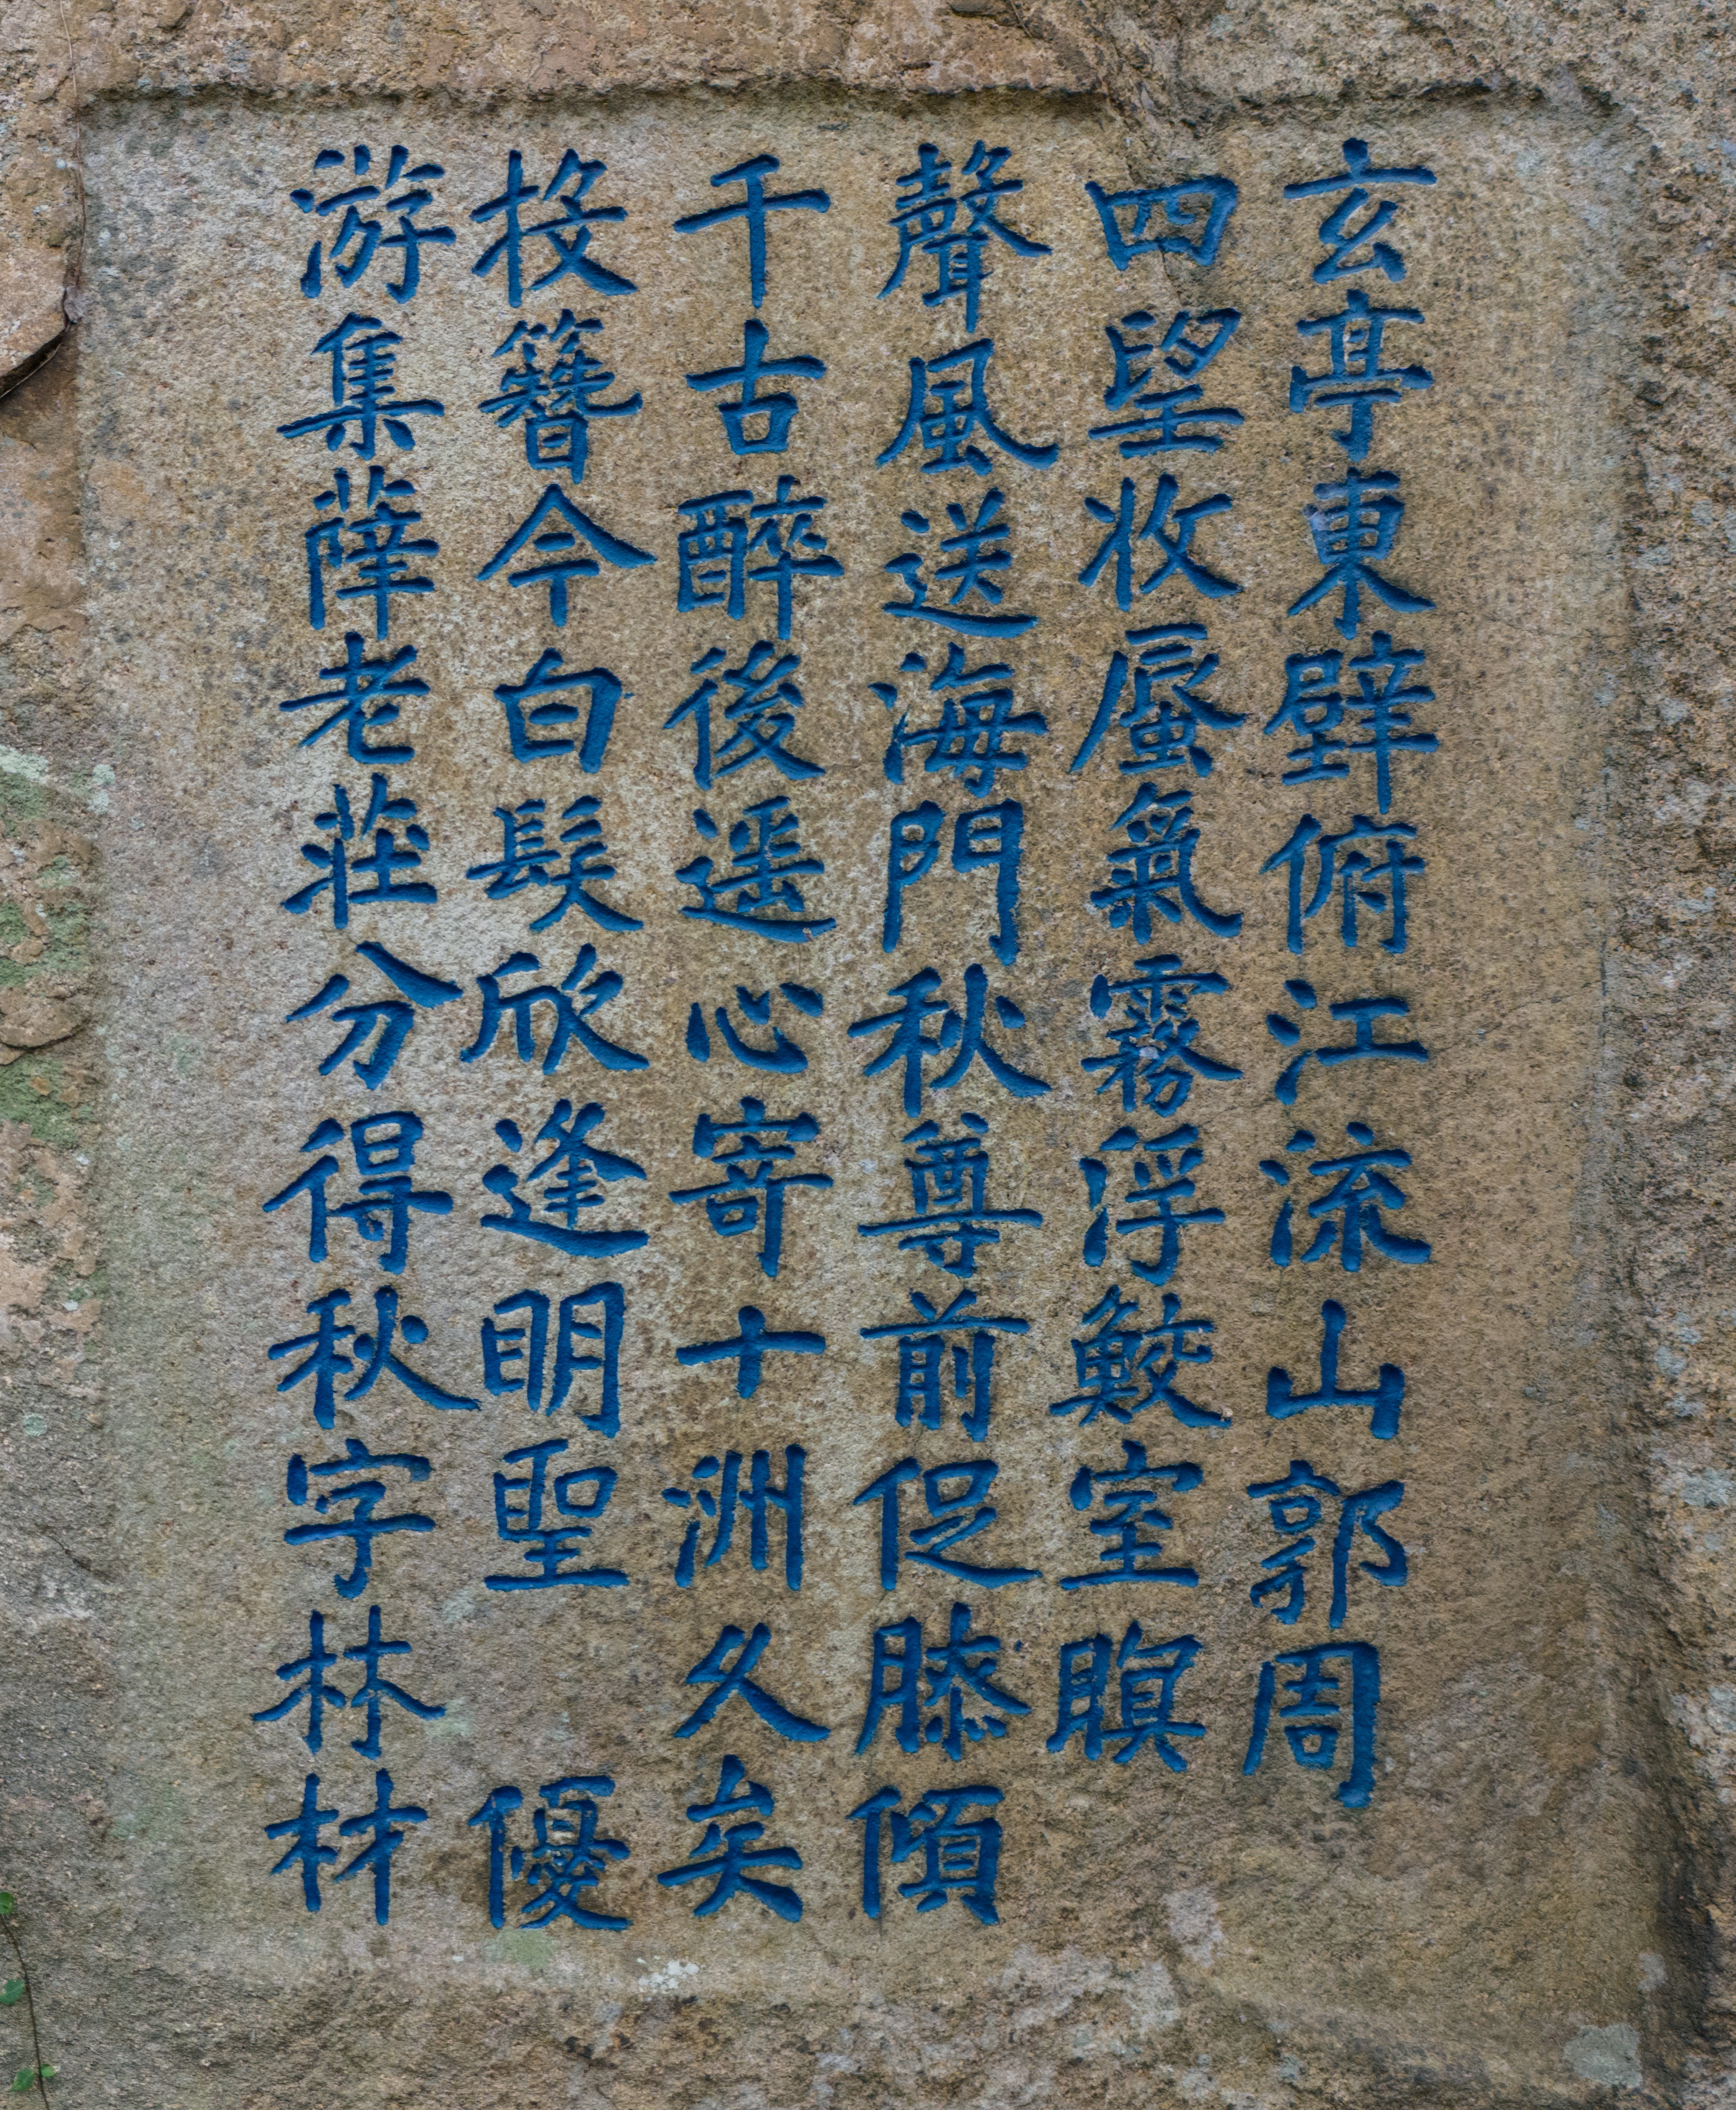 玄亭東壁俯江流山郭周
四望收蜃氣霧浮鮫室瞑
聲風送海門秋尊前促膝傾
千古醉後遥心寄十洲久矣
投簪今白髮欣逢明聖 優
游集薛老莊分得秋字林材